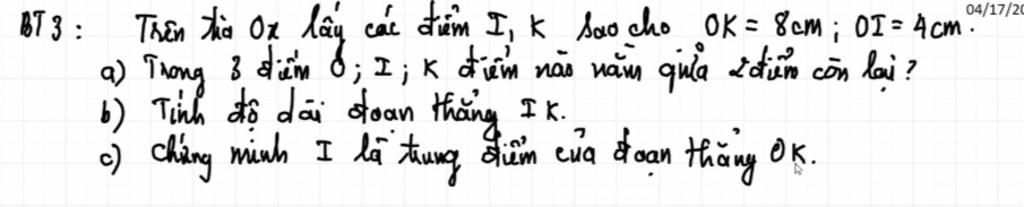 04/17/20
BT3 : Trên tia Ox lấy các điểm I, K sao cho OK = 8cm ; OI = 4cm.
a) Trong 3 điểm O ; I ; K điểm nào nằm giữa 2 điểm còn lại ?
b) Tính độ dài đoạn thẳng IK.
c) Chứng minh I là trung điểm của đoạn thẳng OK.